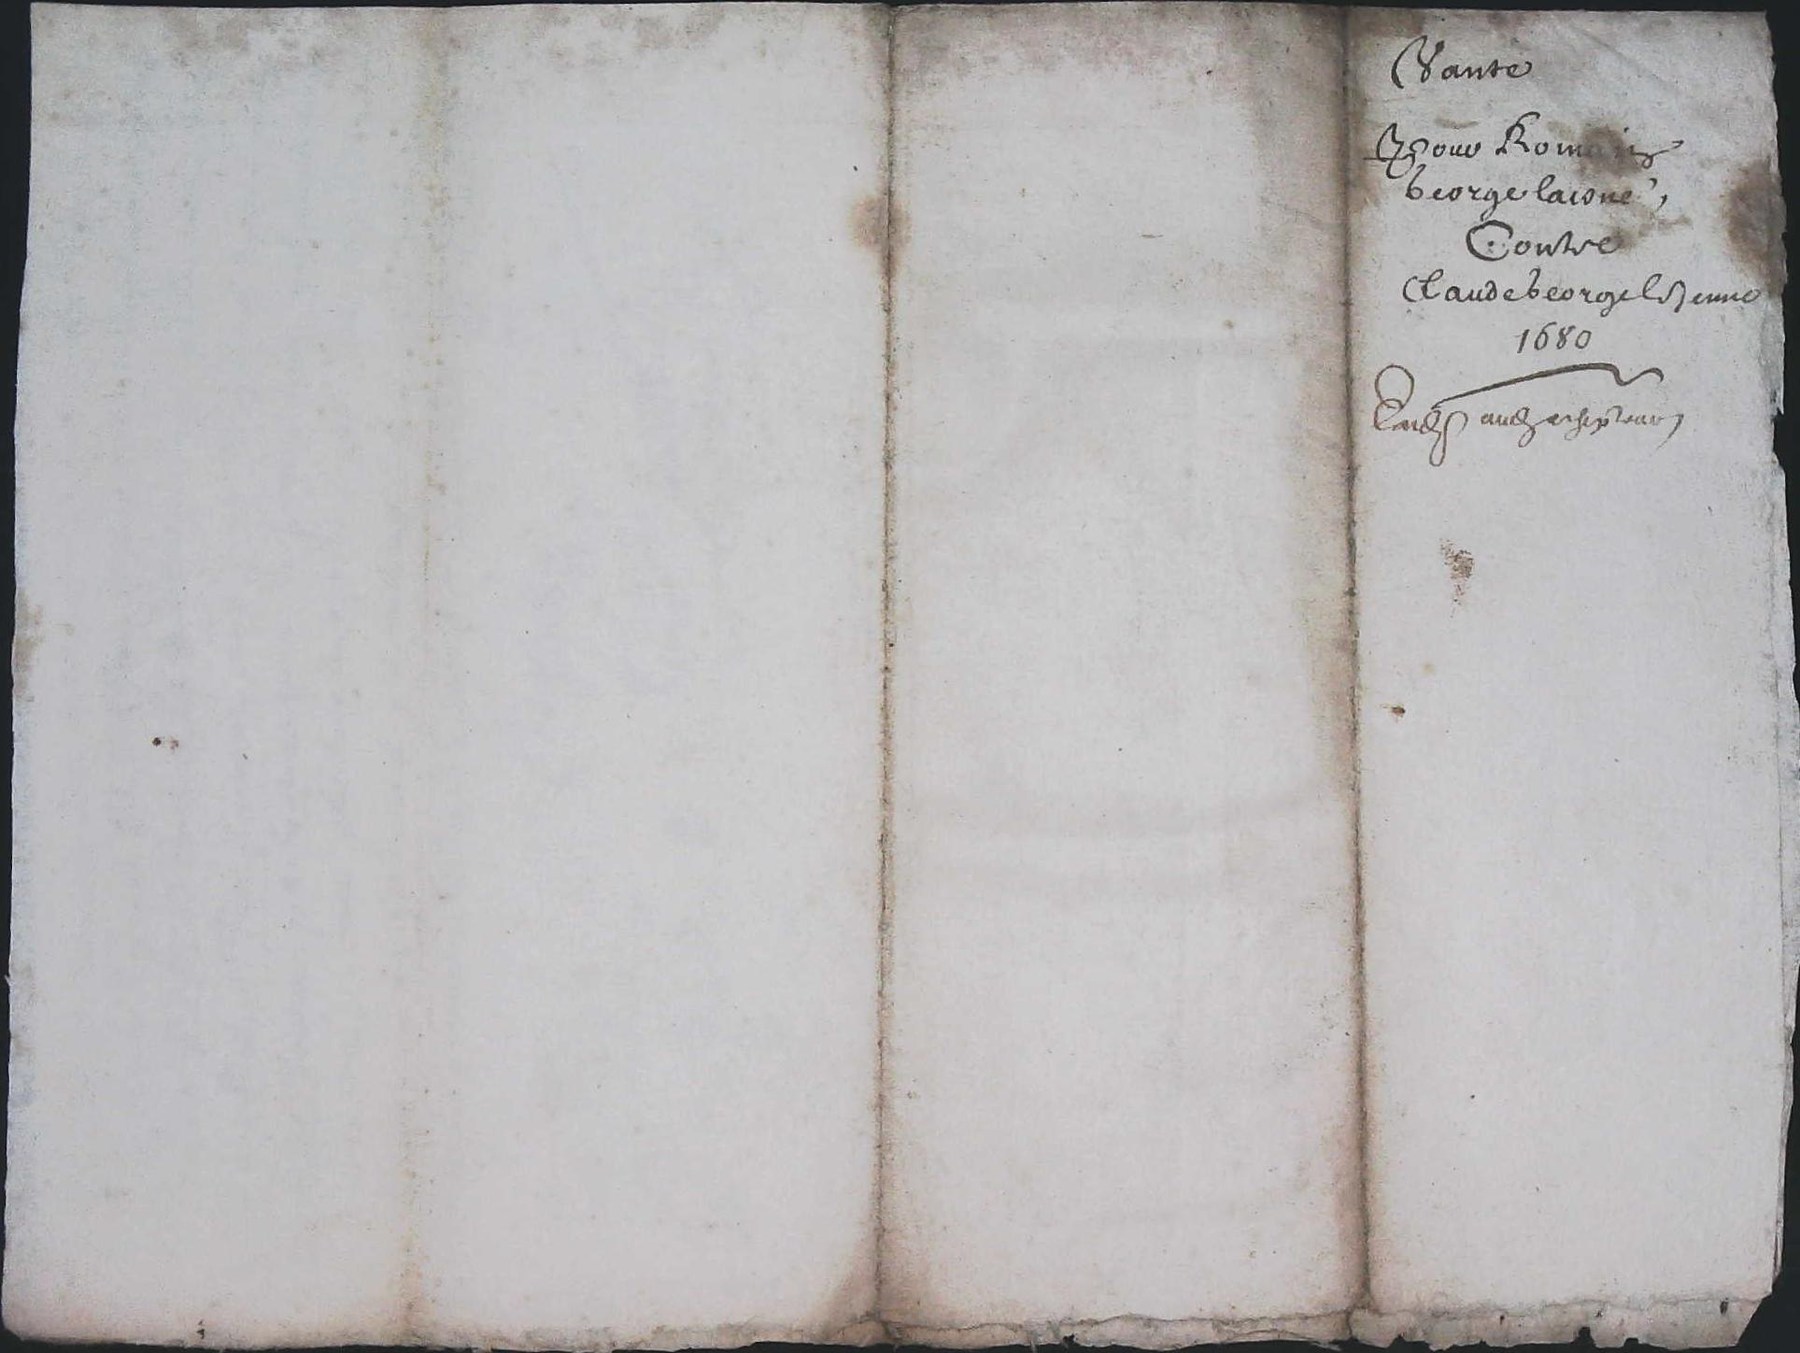 Vante
Pour Romain
George laisné,
Contre
Claude George le Jeune
1680